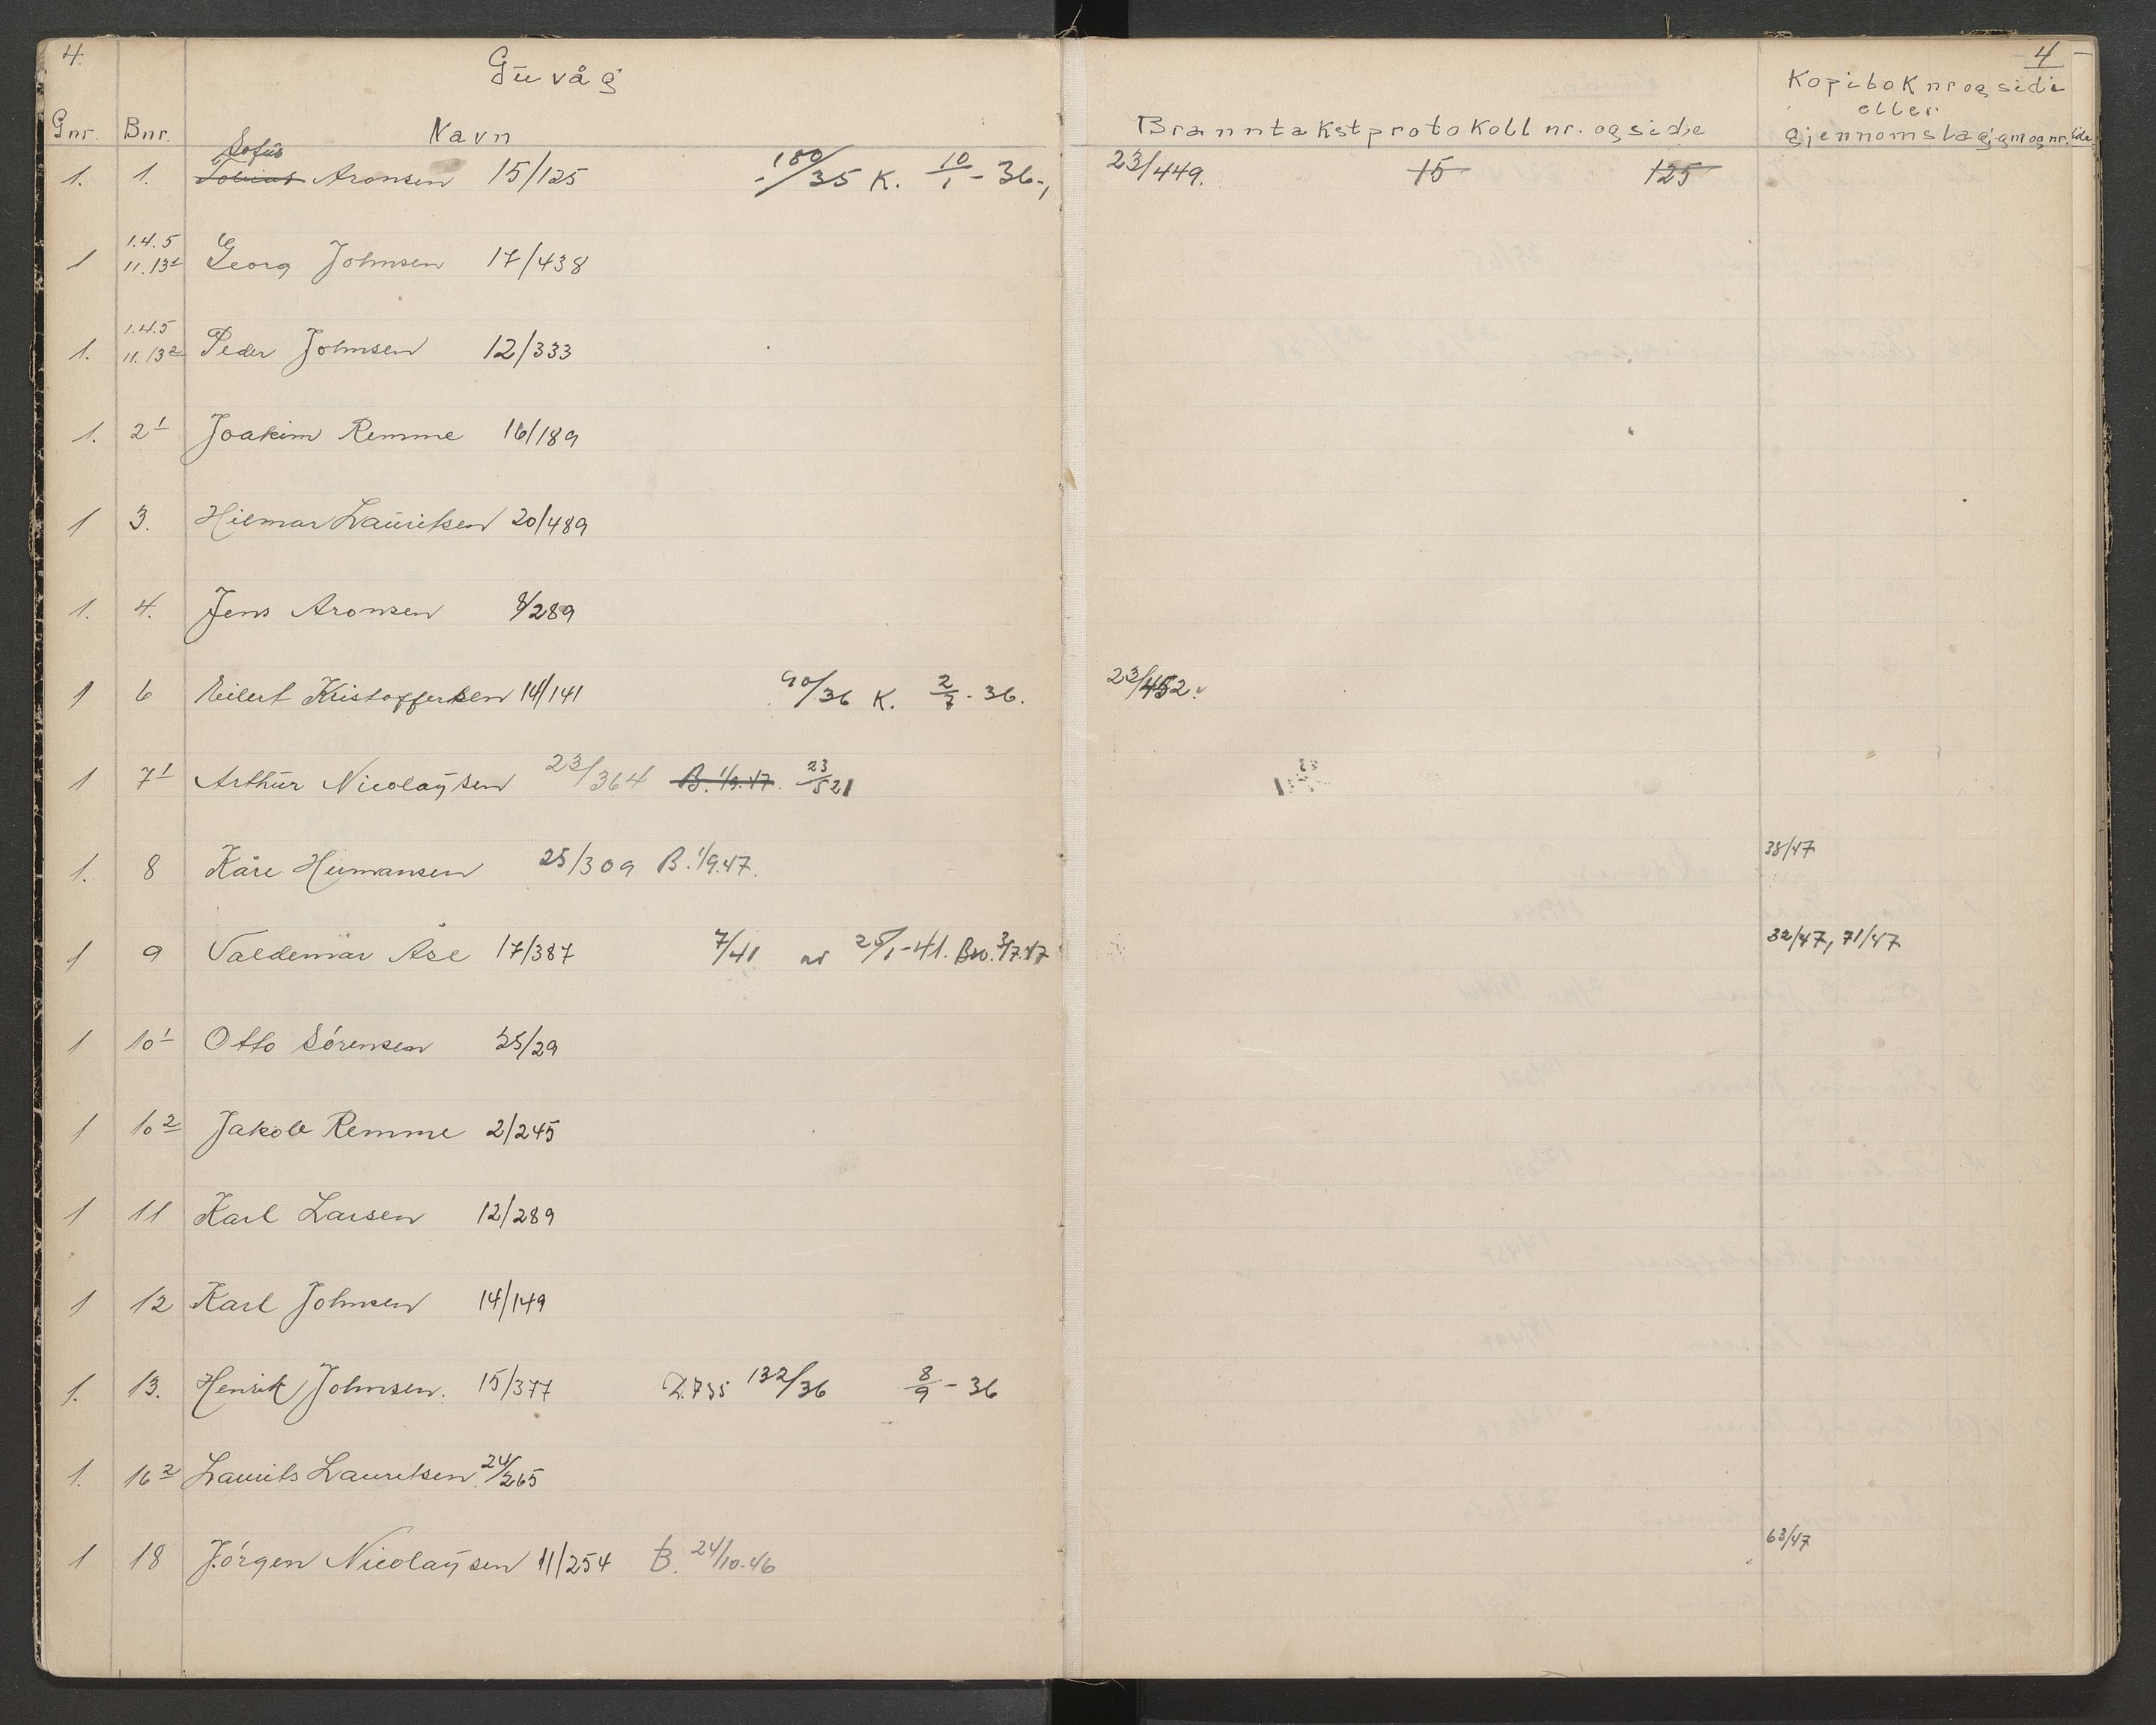 4. Guvåg 4
Kopibok nr og side
eller
Gnr. Bnr. Navn Branntakstprotokoll nr. og side gjennomslag
Sofus
1. 1. Tobias Aronsen 15/125 180/35 K. 10/1 - 36-, 23/449. 15 125
1.4.5
1 11.13¹ Georg Johnsen 17/438
1.4.5
1. 11.13² Peder Johnsen 12/333
1. 2¹ Joakim Remme 16/189
1 3. Hilmar Lauritsen 20/489
1. 4. Jens Aronsen 8/289
1 6 Eilert Kristoffersen 14/141 90/36 K. 2/7 - 36. 23/452.
1 7¹ Arthur Nicolaysen 23/364 B. 1/9.47. 23/521
1. 8 Kåre Hermansen 25/309 B. 1/9.47. 38/47
1 9 Valdemar Åse 17/387 7/41 25/1-41. Bro. 3/7.47 32/47, 71/47
1 10¹ Otto Sørensen 25/29
1 10² Jakob Remme 2/245
1 11 Karl Larsen 12/289
1 12 Karl Johnsen 14/149
1. 13. Henrik Johnsen. 15/377 D.735 132/36 8/9 - 36
1. 16² Laurits Lauritsen 24/265
1 18 Jørgen Nicolaysen 11/254 B. 24/10-46 63/47